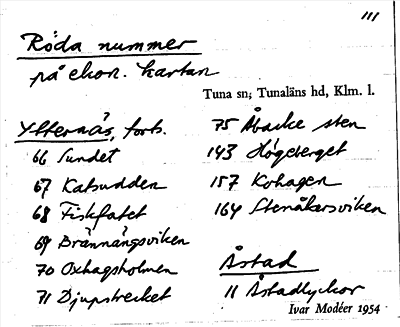 111
Röda nummer
på ekon. kartan
Tuna sn; Tunaläns hd, Klm. l.
Ytternäs, forts.
66 Sundet
67 Katsudden
68 Fiskfatet
69 Brännängsviken
70 Oxhagsholmen
71 Djupstrecket
75 Åbacke sten
143 Högeberget
157 Kohagen
164 Stenåkersviken
Åstad
11 Åstadlyckor
Ivar Modéer 1954